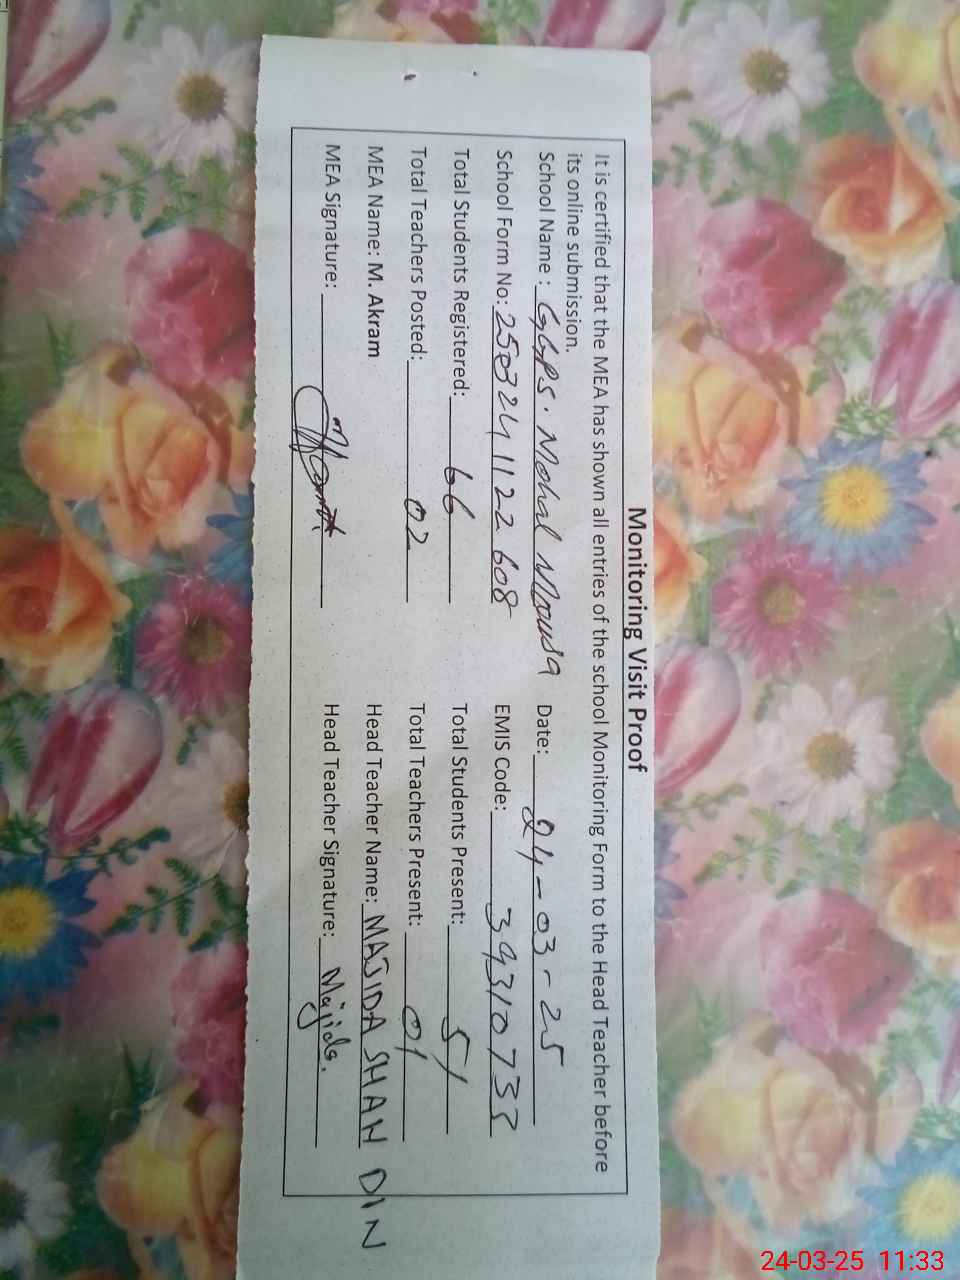 Monitoring Visit Proof
It is certified that the MEA has shown all entries of the school Monitoring Form to the Head Teacher before
its online submission.
School Name : GGPS. Mehal Mousa Date: 24-03-25
School Form No: 250324 1122 608 EMIS Code: 39310733
Total Students Registered: 66 Total Students Present: 51
Total Teachers Posted: 02 Total Teachers Present: 01
MEA Name: M. Akram Head Teacher Name: MAJIDA SHAN DIN
MEA Signature: Head Teacher Signature: Majida.
24-03-25 11:33